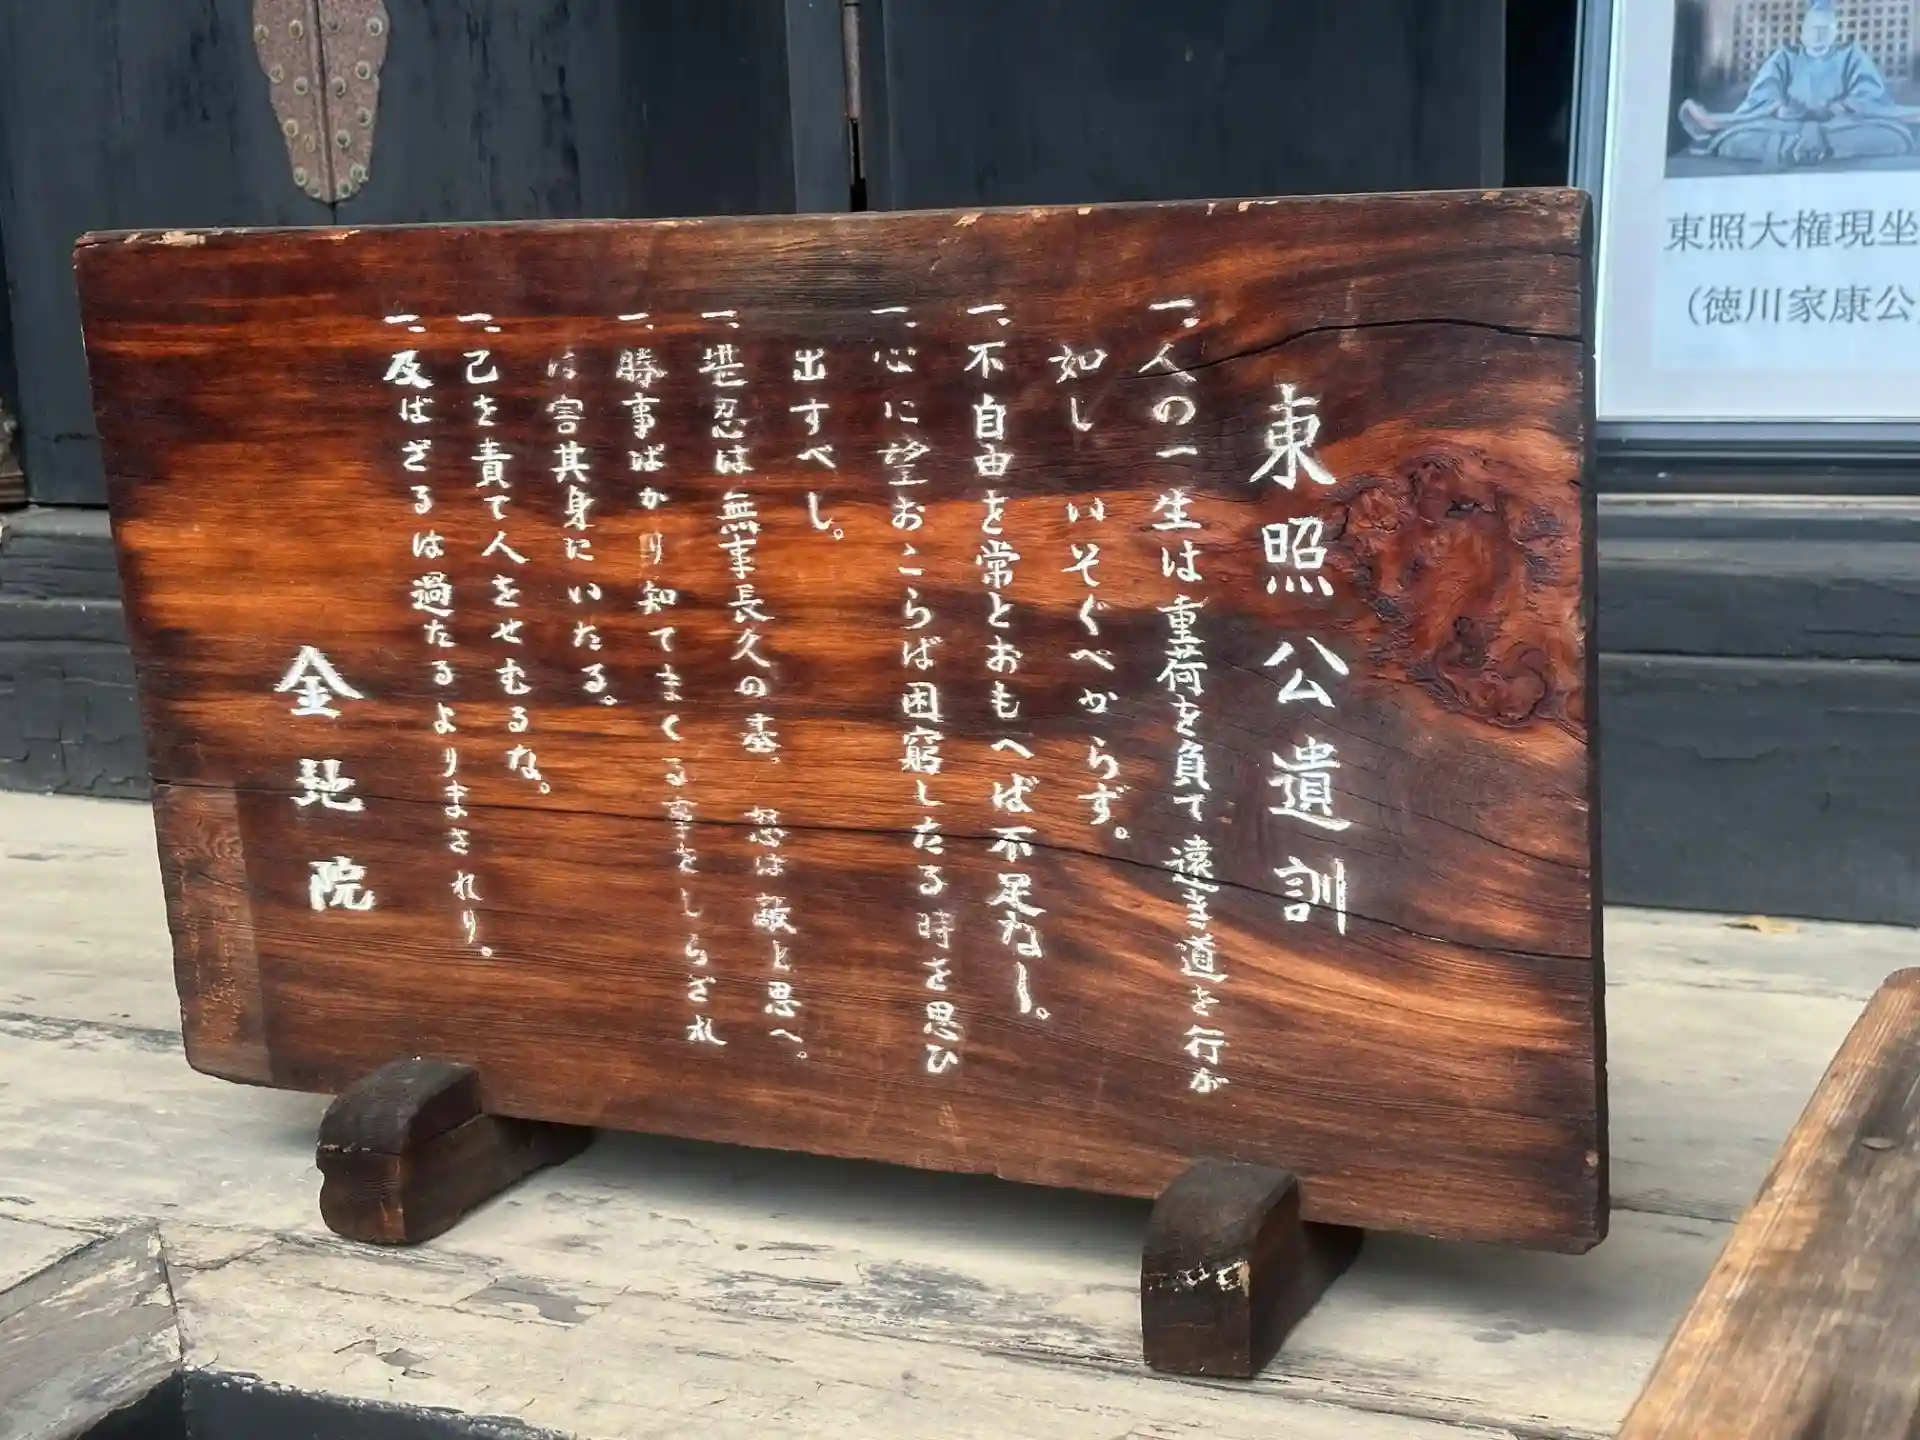 東照公遺訓
一、人の一生は重荷を負て遠き道を行が
如し いそぐべからず。
一、不自由を常とおもへば不足なし。
一、心に望おこらば困窮したる時を思ひ
出すべし。
一、堪忍は無事長久の基、怒は敵と思へ。
一、勝事ばかり知てまくる事をしらざれ
は害其身にいたる。
一、己を責て人をせむるな。
一、及ばざるは過たるよりまされり。
金地院
東照大権現坐
(徳川家康公